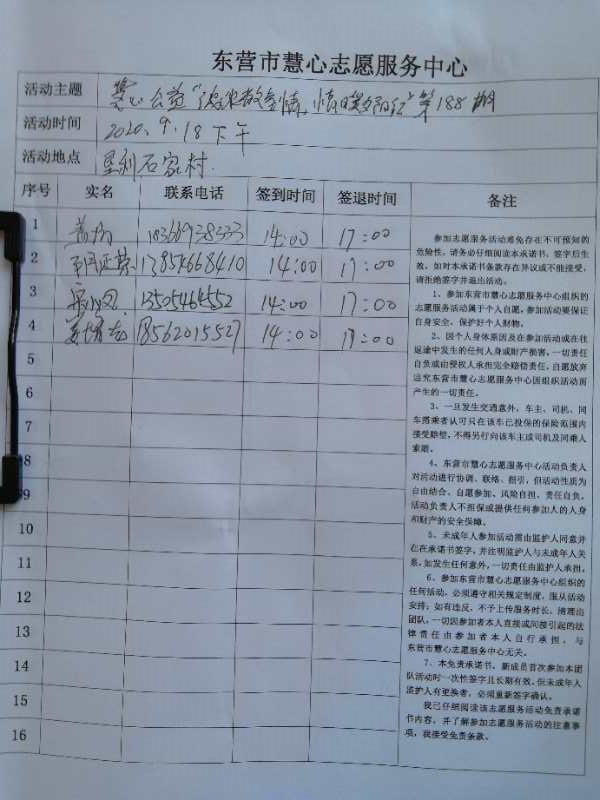 东营市慧心志愿服务中心
活动主题 慧心公益 第188期
活动时间 2020.9.18下午
活动地点 垦利石家村.
序号 实名 联系电话 签到时间 签退时间 备注
1 14:00 17:00
2 14:00 17:00
3 14:00 17:00
4 18562015527 14:00 17:00
5
6
7
8
9
10
11
12
13
14
15
16
参加志愿服务活动难免存在不可预知的
危险性,请务必仔细阅读本承诺书,签字后生
效,如对本承诺书条款存在异议或不能接受,
请拒绝签字并退出活动。
1、参加东营市慧心志愿服务中心组织的
志愿服务活动属于个人自愿,参加活动要保证
自身安全,保护好个人财物。
2、因个人身体原因及在参加活动或在往
返途中发生的任何人身或财产损害,一切责任
自负或由侵权人承担完全赔偿责任,自愿放弃
追究东营市慧心志愿服务中心因组织活动而
产生的一切责任。
3、一旦发生交通意外,车主、司机、同
车搭乘者认可只在该车已投保的保险范围内
接受赔偿,不得另行向该车主或司机及同乘人
索赔。
4、东营市慧心志愿服务中心活动负责人
对活动进行协调、联络、指引,但活动性质为
自由结合、自愿参加、风险自担、责任自负。
活动负责人不担保或提供任何参加人的人身
和财产的安全保障。
5、未成年人参加活动需由监护人同意并
在在承诺书签字,并注明监护人与未成年人关
系,如发生任何意外,一切责任由监护人承担。
6、参加东营市慧心志愿服务中心组织的
任何活动,必须遵守相关规定制度,服从活动
安排;如有违反,不予上传服务时长、清理出
团队,一切因参加者本人直接或间接引起的法
律责任由参加者本人自行承担,与
东营市慧心志愿服务中心无关。
7、本免责承诺书,新成员首次参加本团
队活动时一次性签字且长期有效。但未成年人
监护人有更换者,必须重新签字确认。
我已仔细阅读该志愿服务活动免责承诺
书内容,并了解参加志愿服务活动的注意事
项,我接受免责条款。